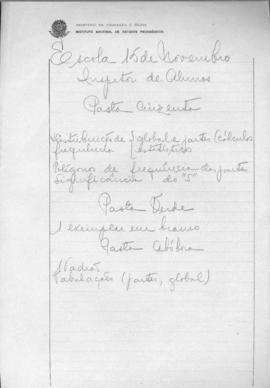 MINISTÉRIO DA EDUCAÇÃO E SAÚDE
INSTITUTO NACIONAL DE ESTUDOS PEDAGÓGICOS
Escola 15 de Novembro
Inspetor de Alunos
Pasta Cinzenta
Distribuição de { global e partes (cálculos
frequência { estatísticos
Polígono de frequência das partes
Significância do "S"
Pasta Verde
1 exemplar em branco
Pasta Abóbora
Padrão
Tabulações (partes, global)